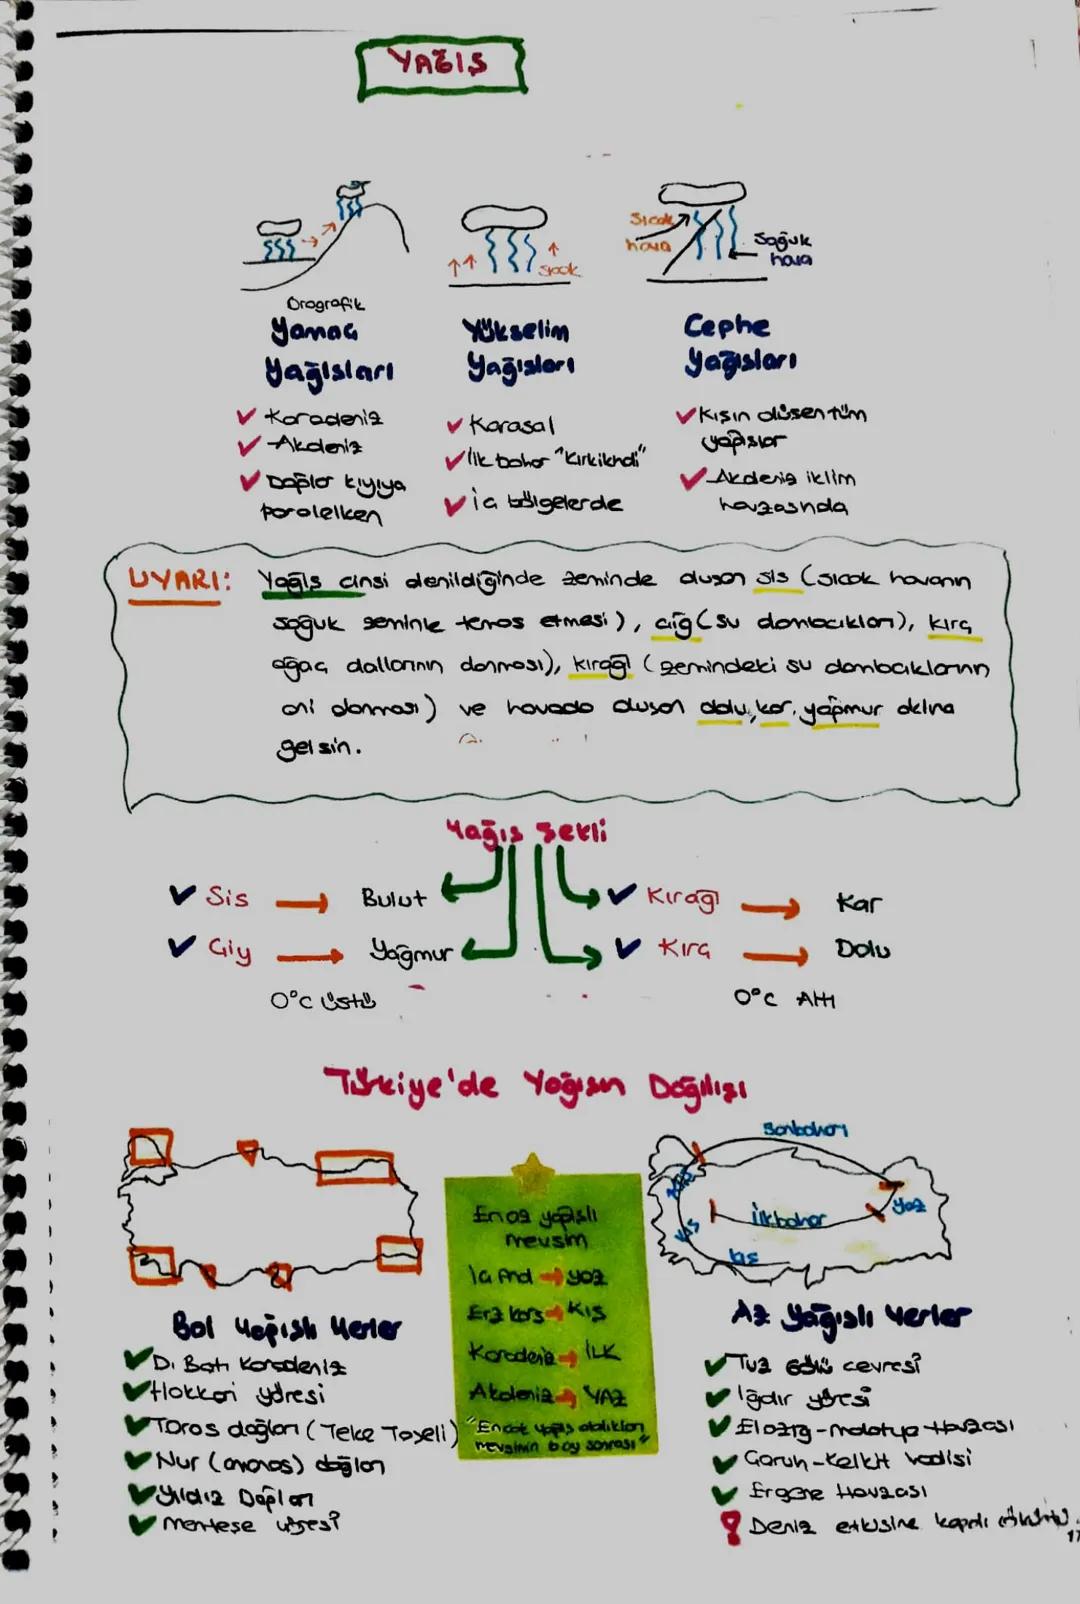 YAĞIŞ
Sıcak
hava
Soğuk
hava
sıcak
Orografik
Yamaç
Yağışları
Yükselim
Yağışları
Cephe
Yağışları
✓ Karadeniz
✓ Akdeniz
✓ Dağlar kıyıya
paralelken
✓ Karasal
✓ İlk bahar "Kırkikindi"
✓ İç bölgelerde
✓ Kışın düşen tüm
yağışlar
✓ Akdeniz iklim
havzasında
UYARI: Yağış cinsi denildiğinde zeminde oluşan sis (sıcak havanın
soğuk zeminle temas etmesi), çiğ (su damlacıkları), kırç
ağaç dallarının donması), kırağı (zemindeki su dambacıklarının
ani donması) ve havada oluşan dolu, kar, yağmur aklına
gelsin.
Yağış Şekli
✓ Sis → Bulut
✓ Çiy → Yağmur
0°C üstü
✓ Kırağı → Kar
✓ Kırç → Dolu
0°C Altı
Türkiye'de Yağışın Dağılışı
Sonbahar
yaz
İlkbahar
kış
kış
En az yağışlı
mevsim
İç And → yaz
Erz Kars → Kış
Karadeniz → İLK
Akdeniz → YAZ
"En çok yağış aldıkları
mevsimin boy sonrası"
Bol Yağışlı Yerler
✓ D. Batı Karadeniz
✓ Hakkari yöresi
✓ Toros dağları (Teke Taşeli)
✓ Nur (amanos) dağları
✓ Yıldız Dağları
✓ Menteşe yöresi
Az Yağışlı Yerler
✓ Tuz Gölü çevresi
✓ Iğdır yöresi
✓ Elazığ-malatya Havzası
✓ Çoruh-Kelkit Vadisi
✓ Ergene Havzası
! Deniz etkisine kapalı
17